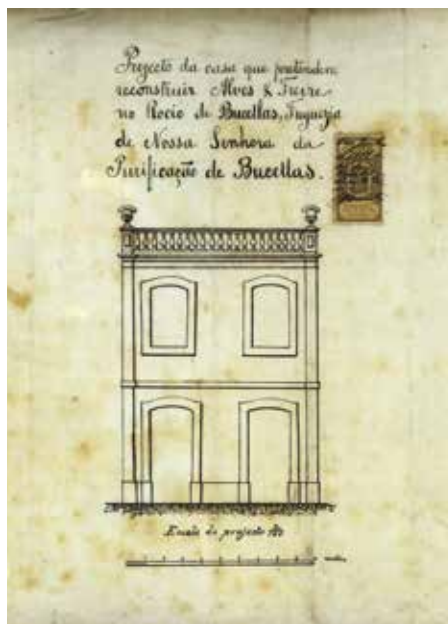 Projecto da casa que pretendem
reconstruir Alves & Freire
no Rocio de Bucellas, Freguezia
de Nossa Senhora da
Purificação de Bucellas.
Escala do projecto